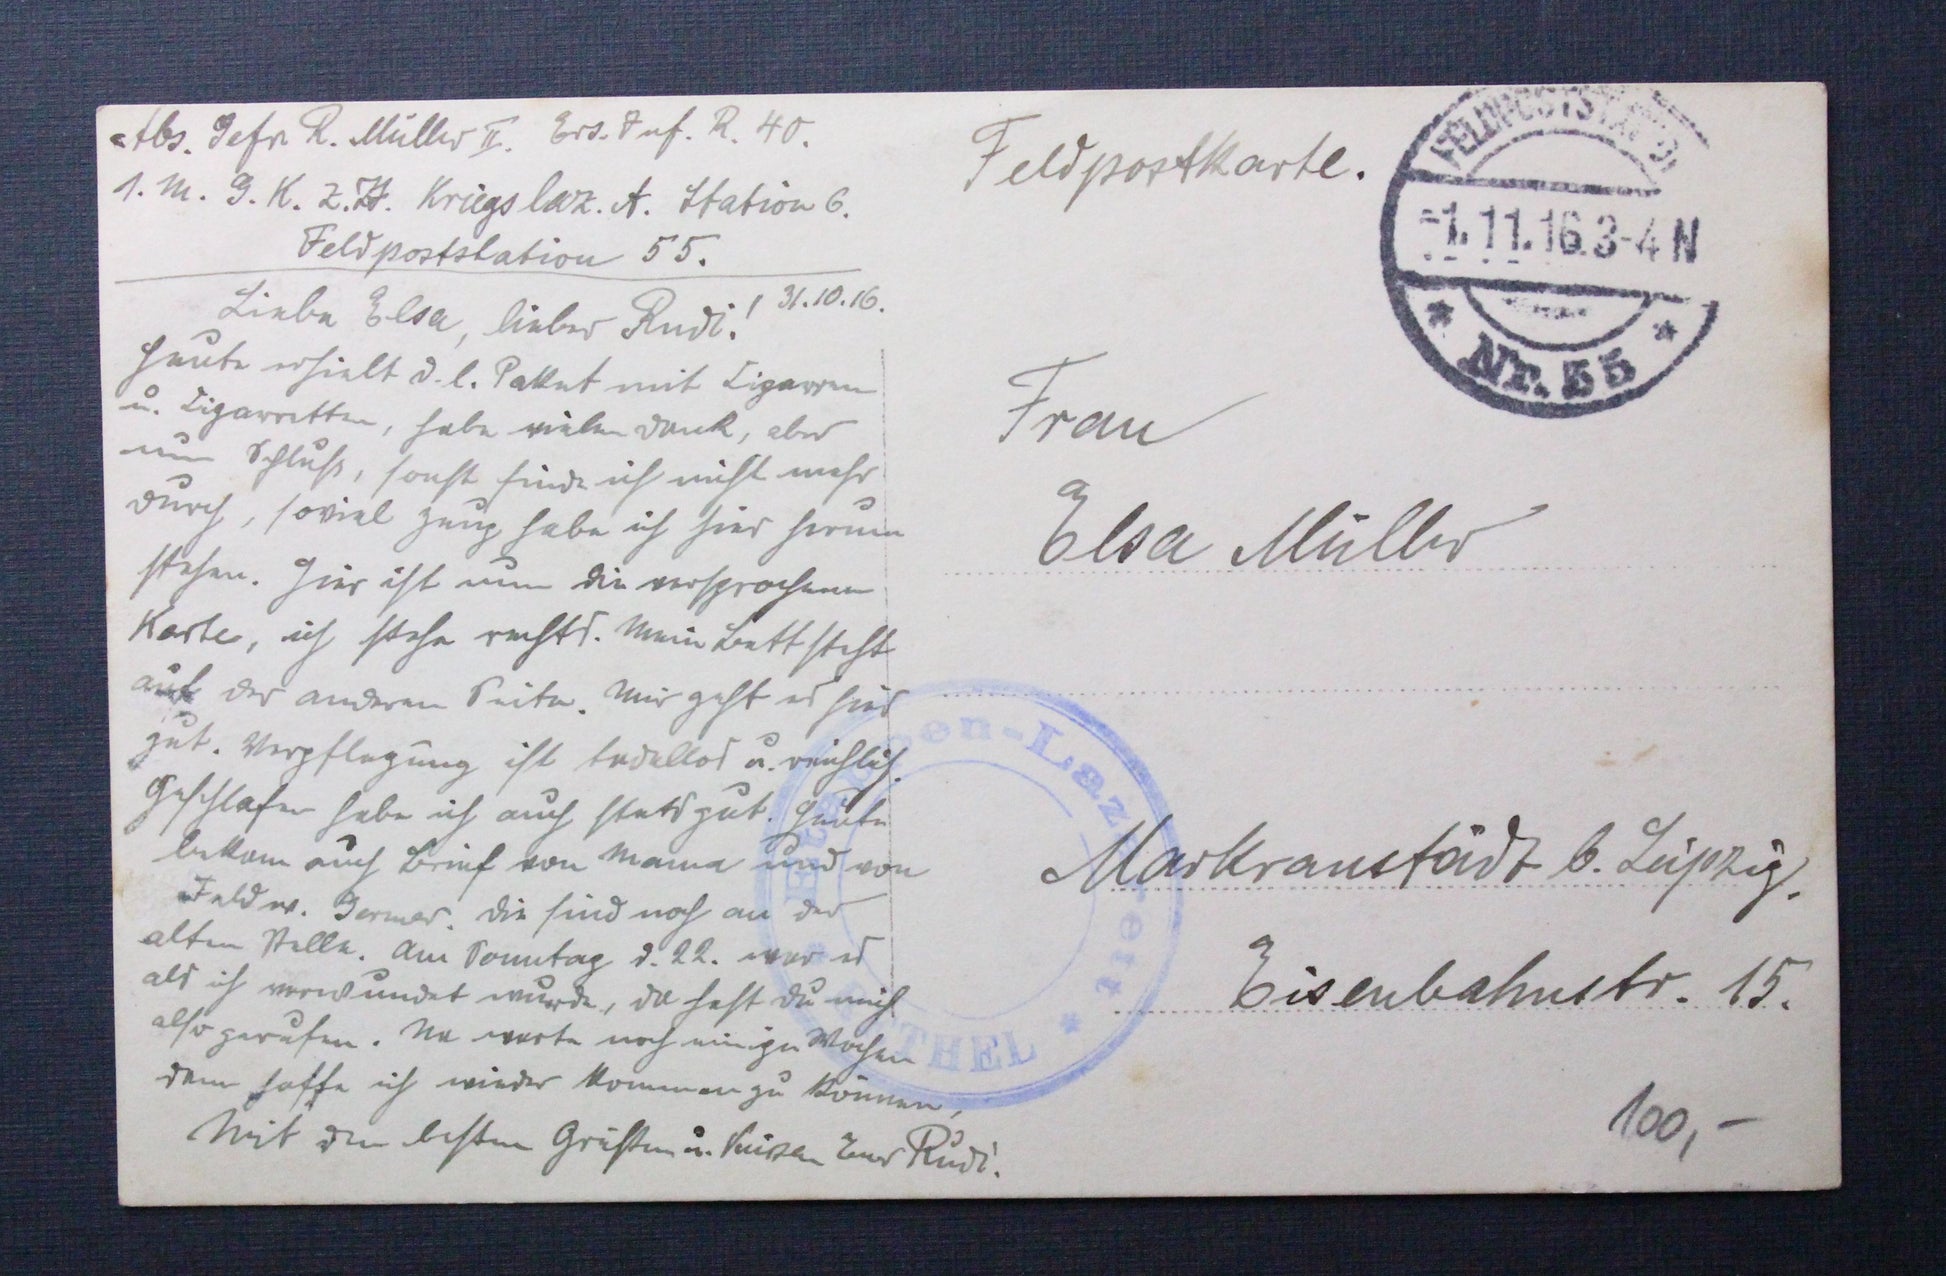 Abs. Gefr. R. Müller II. Ers. Inf. R. 40.
1. M. G. K. z.Zt. Kriegslaz. A. Station 6.
Feldpoststation 55.
31.10.16.
Liebe Elsa, lieber Rudi!
Heute erhielt d. l. Paket mit Zigarren
u. Zigarretten, habe vielen Dank, aber
nun Schluß, sonst finde ich nicht mehr
durch, soviel Zeug habe ich hier herum
stehen. Hier ist nun die versprochene
Karte, ich stehe rechts. Mein Bett steht
auf der anderen Seite. Mir geht es hier
gut. Verpflegung ist tadellos u. reichlich.
Geschlafen habe ich auch stets gut. Heute
bekam auch Brief von Mama und von
Feldw. Germer. Die sind noch an der
alten Stelle. Am Sonntag d. 22. war es
als ich verwundet wurde, da hast Du mich
also gerufen. Na warte noch einige Wochen
dann hoffe ich wieder kommen zu können,
Mit den besten Grüßen u. Küssen Euer Rudi.
Feldpostkarte.
FELDPOSTSTATION
-1.11.16.3-4 N
* Nr. 55 *
Frau
Elsa Müller
Markranstädt b. Leipzig.
Eisenbahnstr. 15.
Etappen-Lazarett
* RETHEL *
100,-